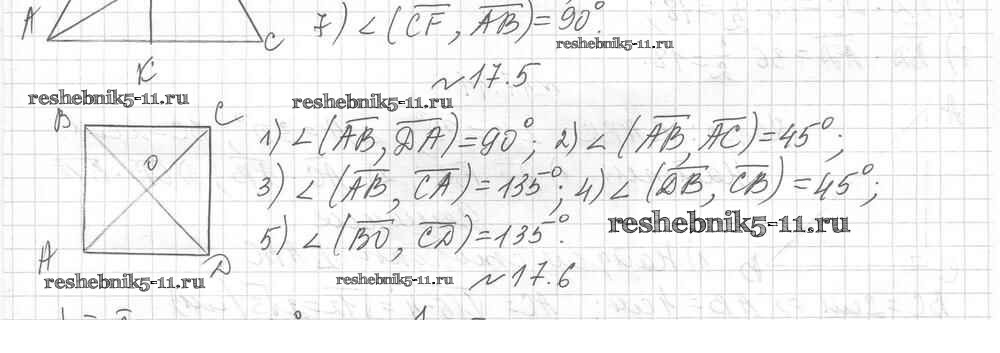 A C 7) ∠(CF, AB)=90°.
reshebnik5-11.ru
K ~17.5
reshebnik5-11.ru reshebnik5-11.ru
B C
1) ∠(AB, DA)=90°; 2) ∠(AB, AC)=45°;
O
3) ∠(AB, CA)=135°; 4) ∠(DB, CB)=45°;
reshebnik5-11.ru
5) ∠(BO, CD)=135°.
A D
reshebnik5-11.ru reshebnik5-11.ru ~17.6